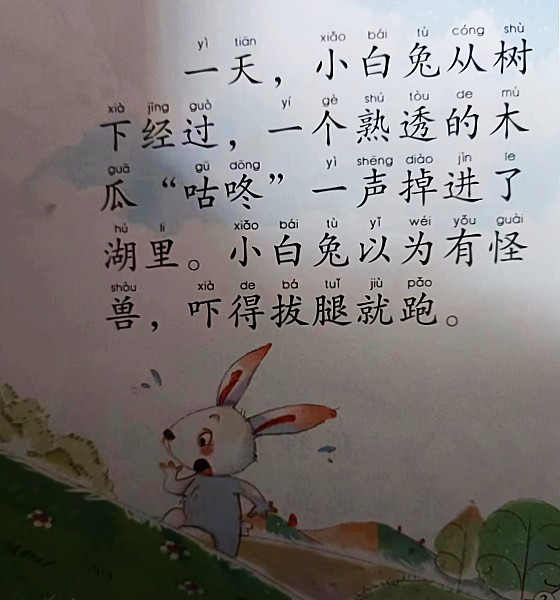 yì tiān xiǎo bái tù cóng shù
一天，小白兔从树
xià jīng guò yí gè shú tòu de mù
下经过，一个熟透的木
guā gū dōng yì shēng diào jìn le
瓜“咕咚”一声掉进了
hú li xiǎo bái tù yǐ wéi yǒu guài
湖里。小白兔以为有怪
shòu xià de bá tuǐ jiù pǎo
兽，吓得拔腿就跑。